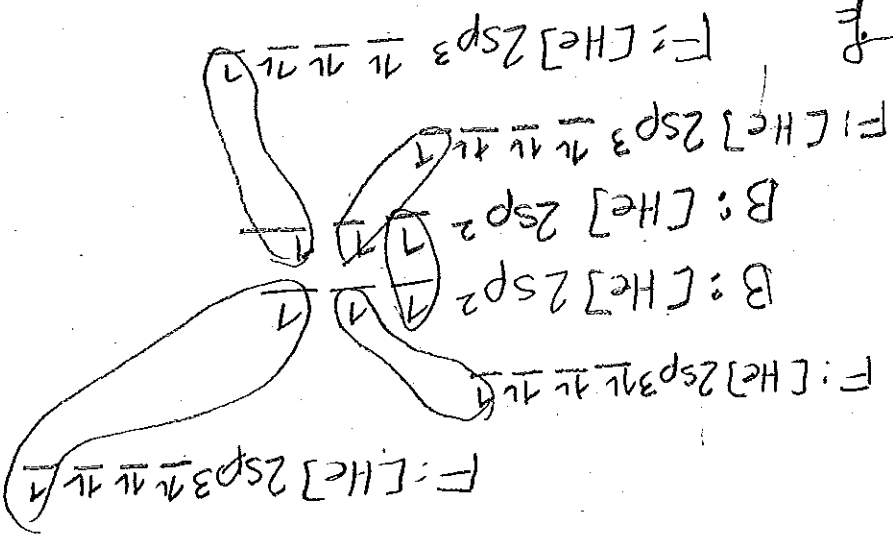 F: [He] 2sp³ ↿⇂ ↿⇂ ↿⇂ ↿
F: [He] 2sp³ ↿⇂ ↿⇂ ↿⇂ ↿
B: [He] 2sp² ↿ ↿ ↿
B: [He] 2sp² ↿ ↿ ↿
F: [He] 2sp³ ↿⇂ ↿⇂ ↿⇂ ↿
F: [He] 2sp³ ↿⇂ ↿⇂ ↿⇂ ↿